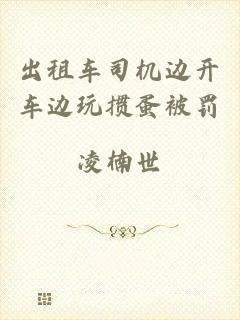 出租车司机边开
车边玩掼蛋被罚
凌楠世